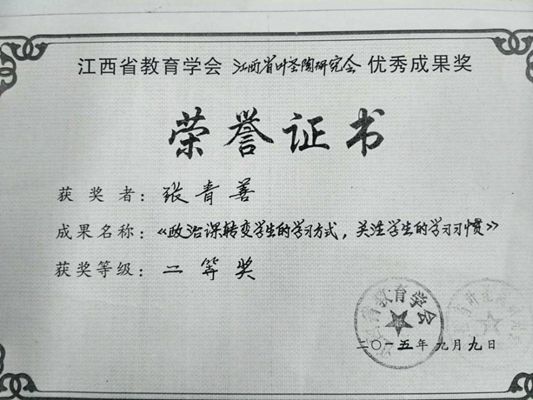 江西省教育学会 江西省叶圣陶研究会 优秀成果奖
荣誉证书
获奖者：张青善
成果名称：《政治课转变学生的学习方式，关注学生的学习习惯》
获奖等级：二等奖
江西省教育学会
二〇一五年九月九日